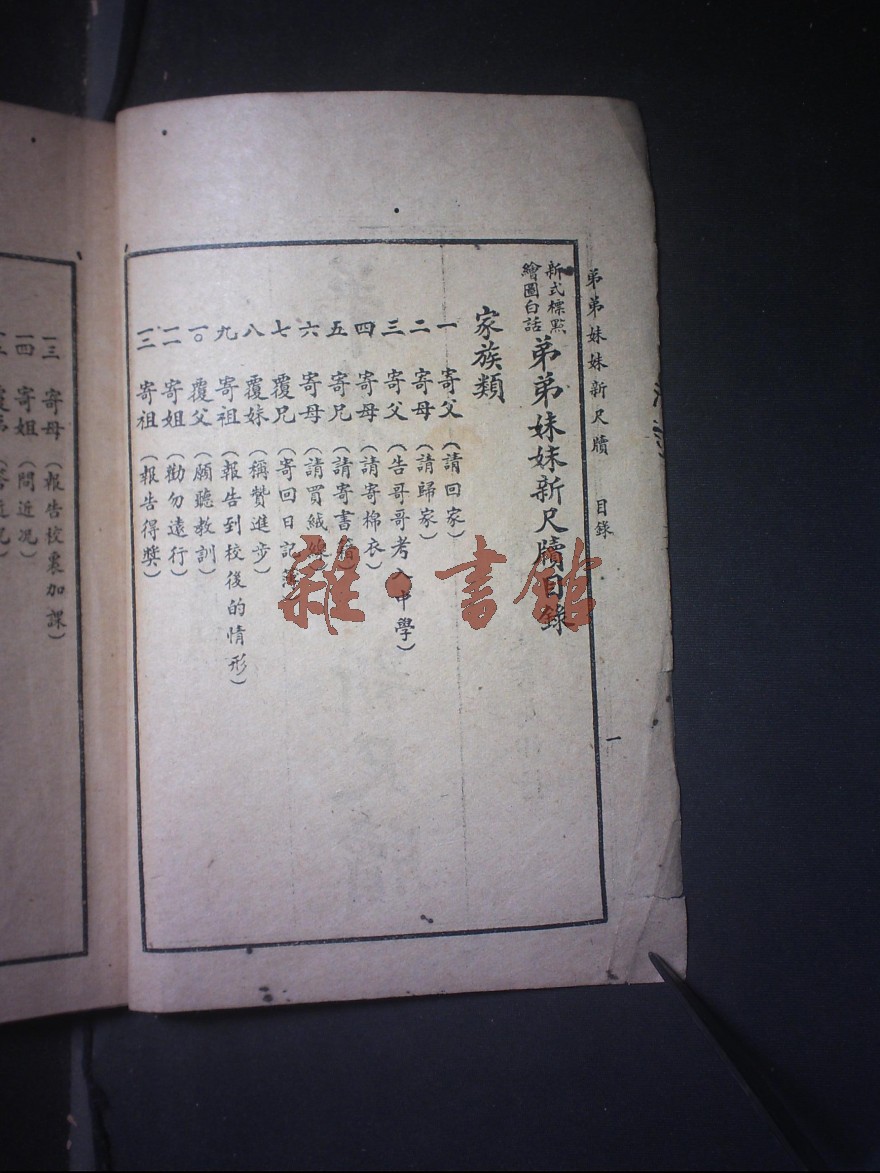 弟弟妹妹新尺牘 目錄
一
新式標點
繪圖白話
弟弟妹妹新尺牘目錄
家族類
一 寄父(請回家)
二 寄母(請歸家)
三 寄父(告哥哥考入中學)
四 寄母(請寄棉衣)
五 寄兄(請寄書
六 寄母(請買絨
七 覆兄(寄回日記
八 覆妹(稱贊進步)
九 寄祖(報告到校後的情形)
一〇 覆父(願聽教訓)
一一 寄姐(勸勿遠行)
一二 寄祖(報告得獎)
一三 寄母(報告校裏加課)
一四 寄姐(問近況)
雜·書館